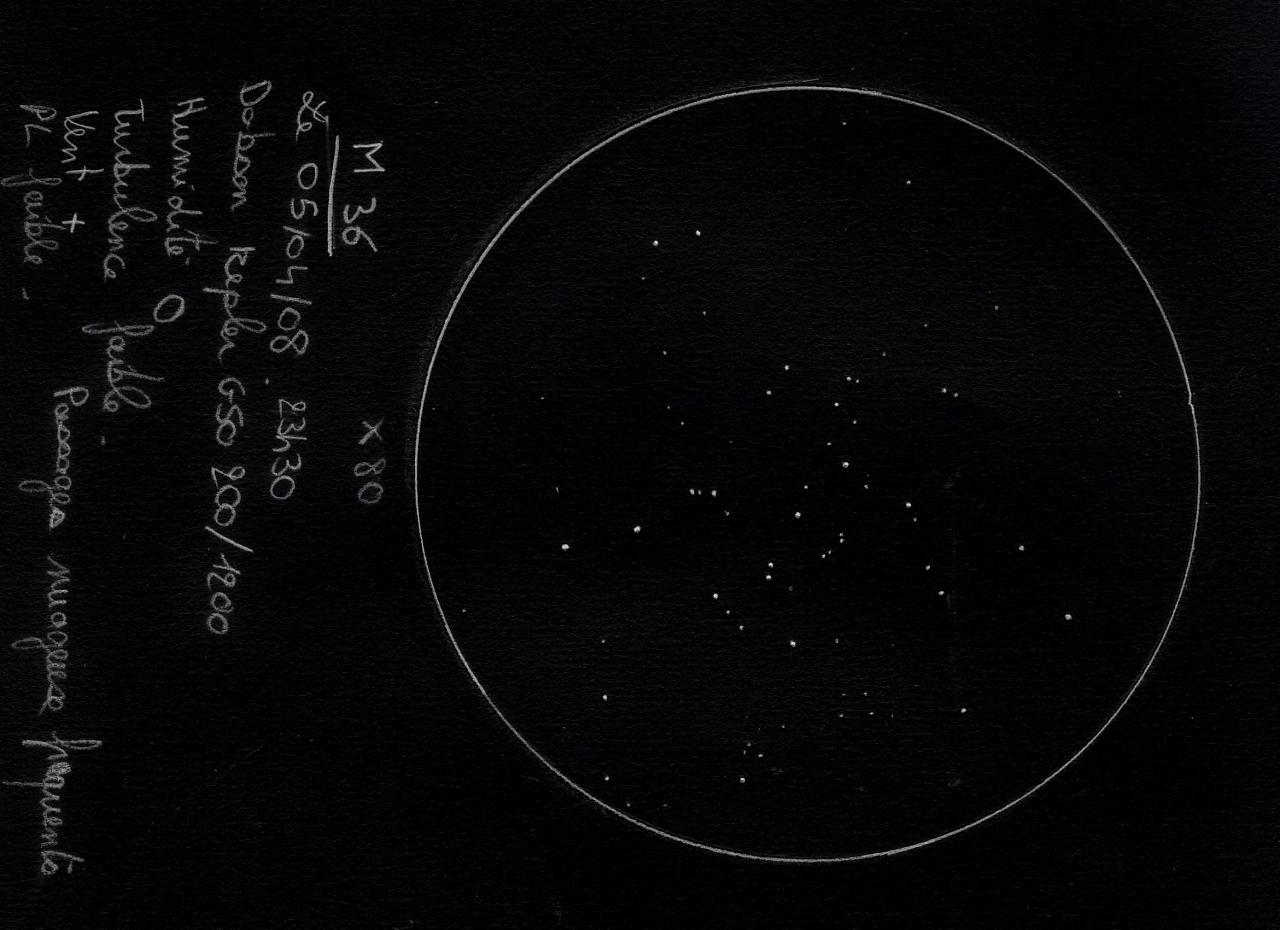 M 36 x 80
Le 05/04/08. 23h30
Dobson Kepler GSO 200/1200
Humidité O
Turbulence faible.
Vent + Passages nuageux fréquents
PL faible.